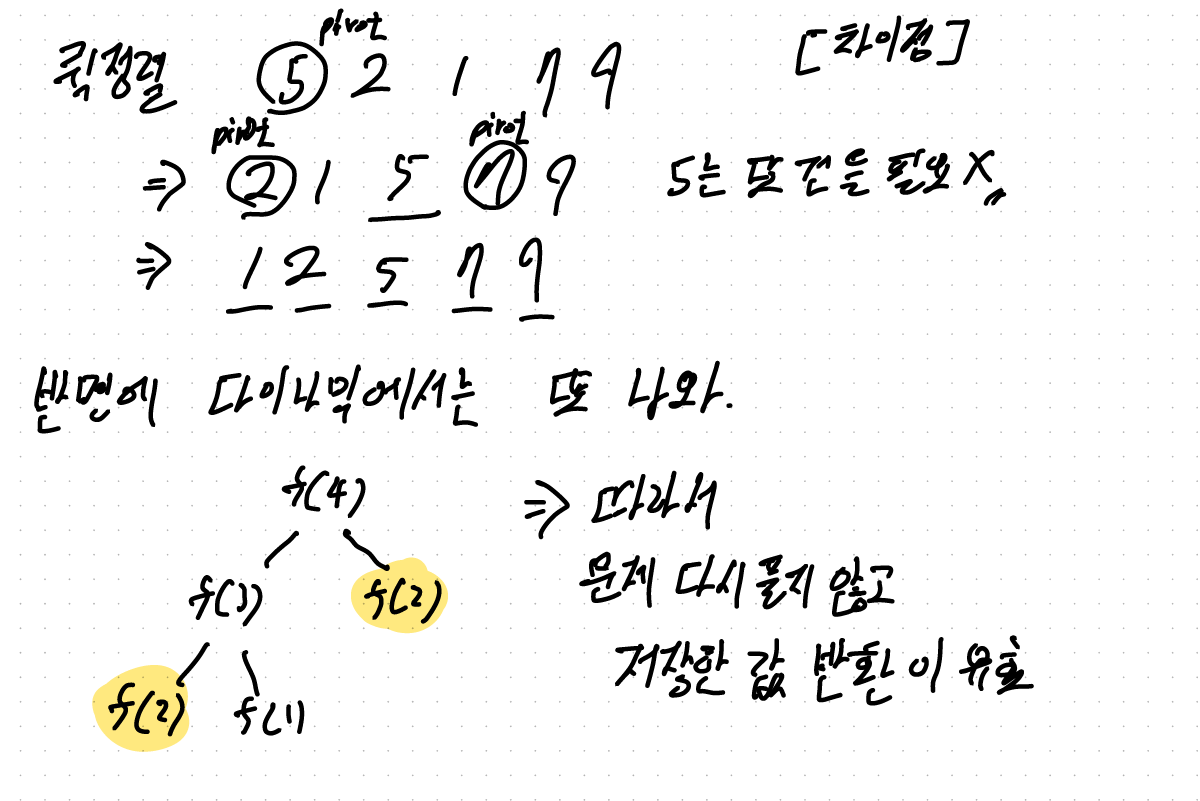 pivot
퀵정렬 5 2 1 7 9 [차이점]
pivot pivot
⇒ 2 1 5 7 9 5는 또 건들 필요 X
⇒ 1 2 5 7 9
반면에 다이나믹에서는 또 나와.
f(4) ⇒ 따라서
f(3) f(2) 문제 다시 풀지 않고
저장한 값 반환이 유효
f(2) f(1)